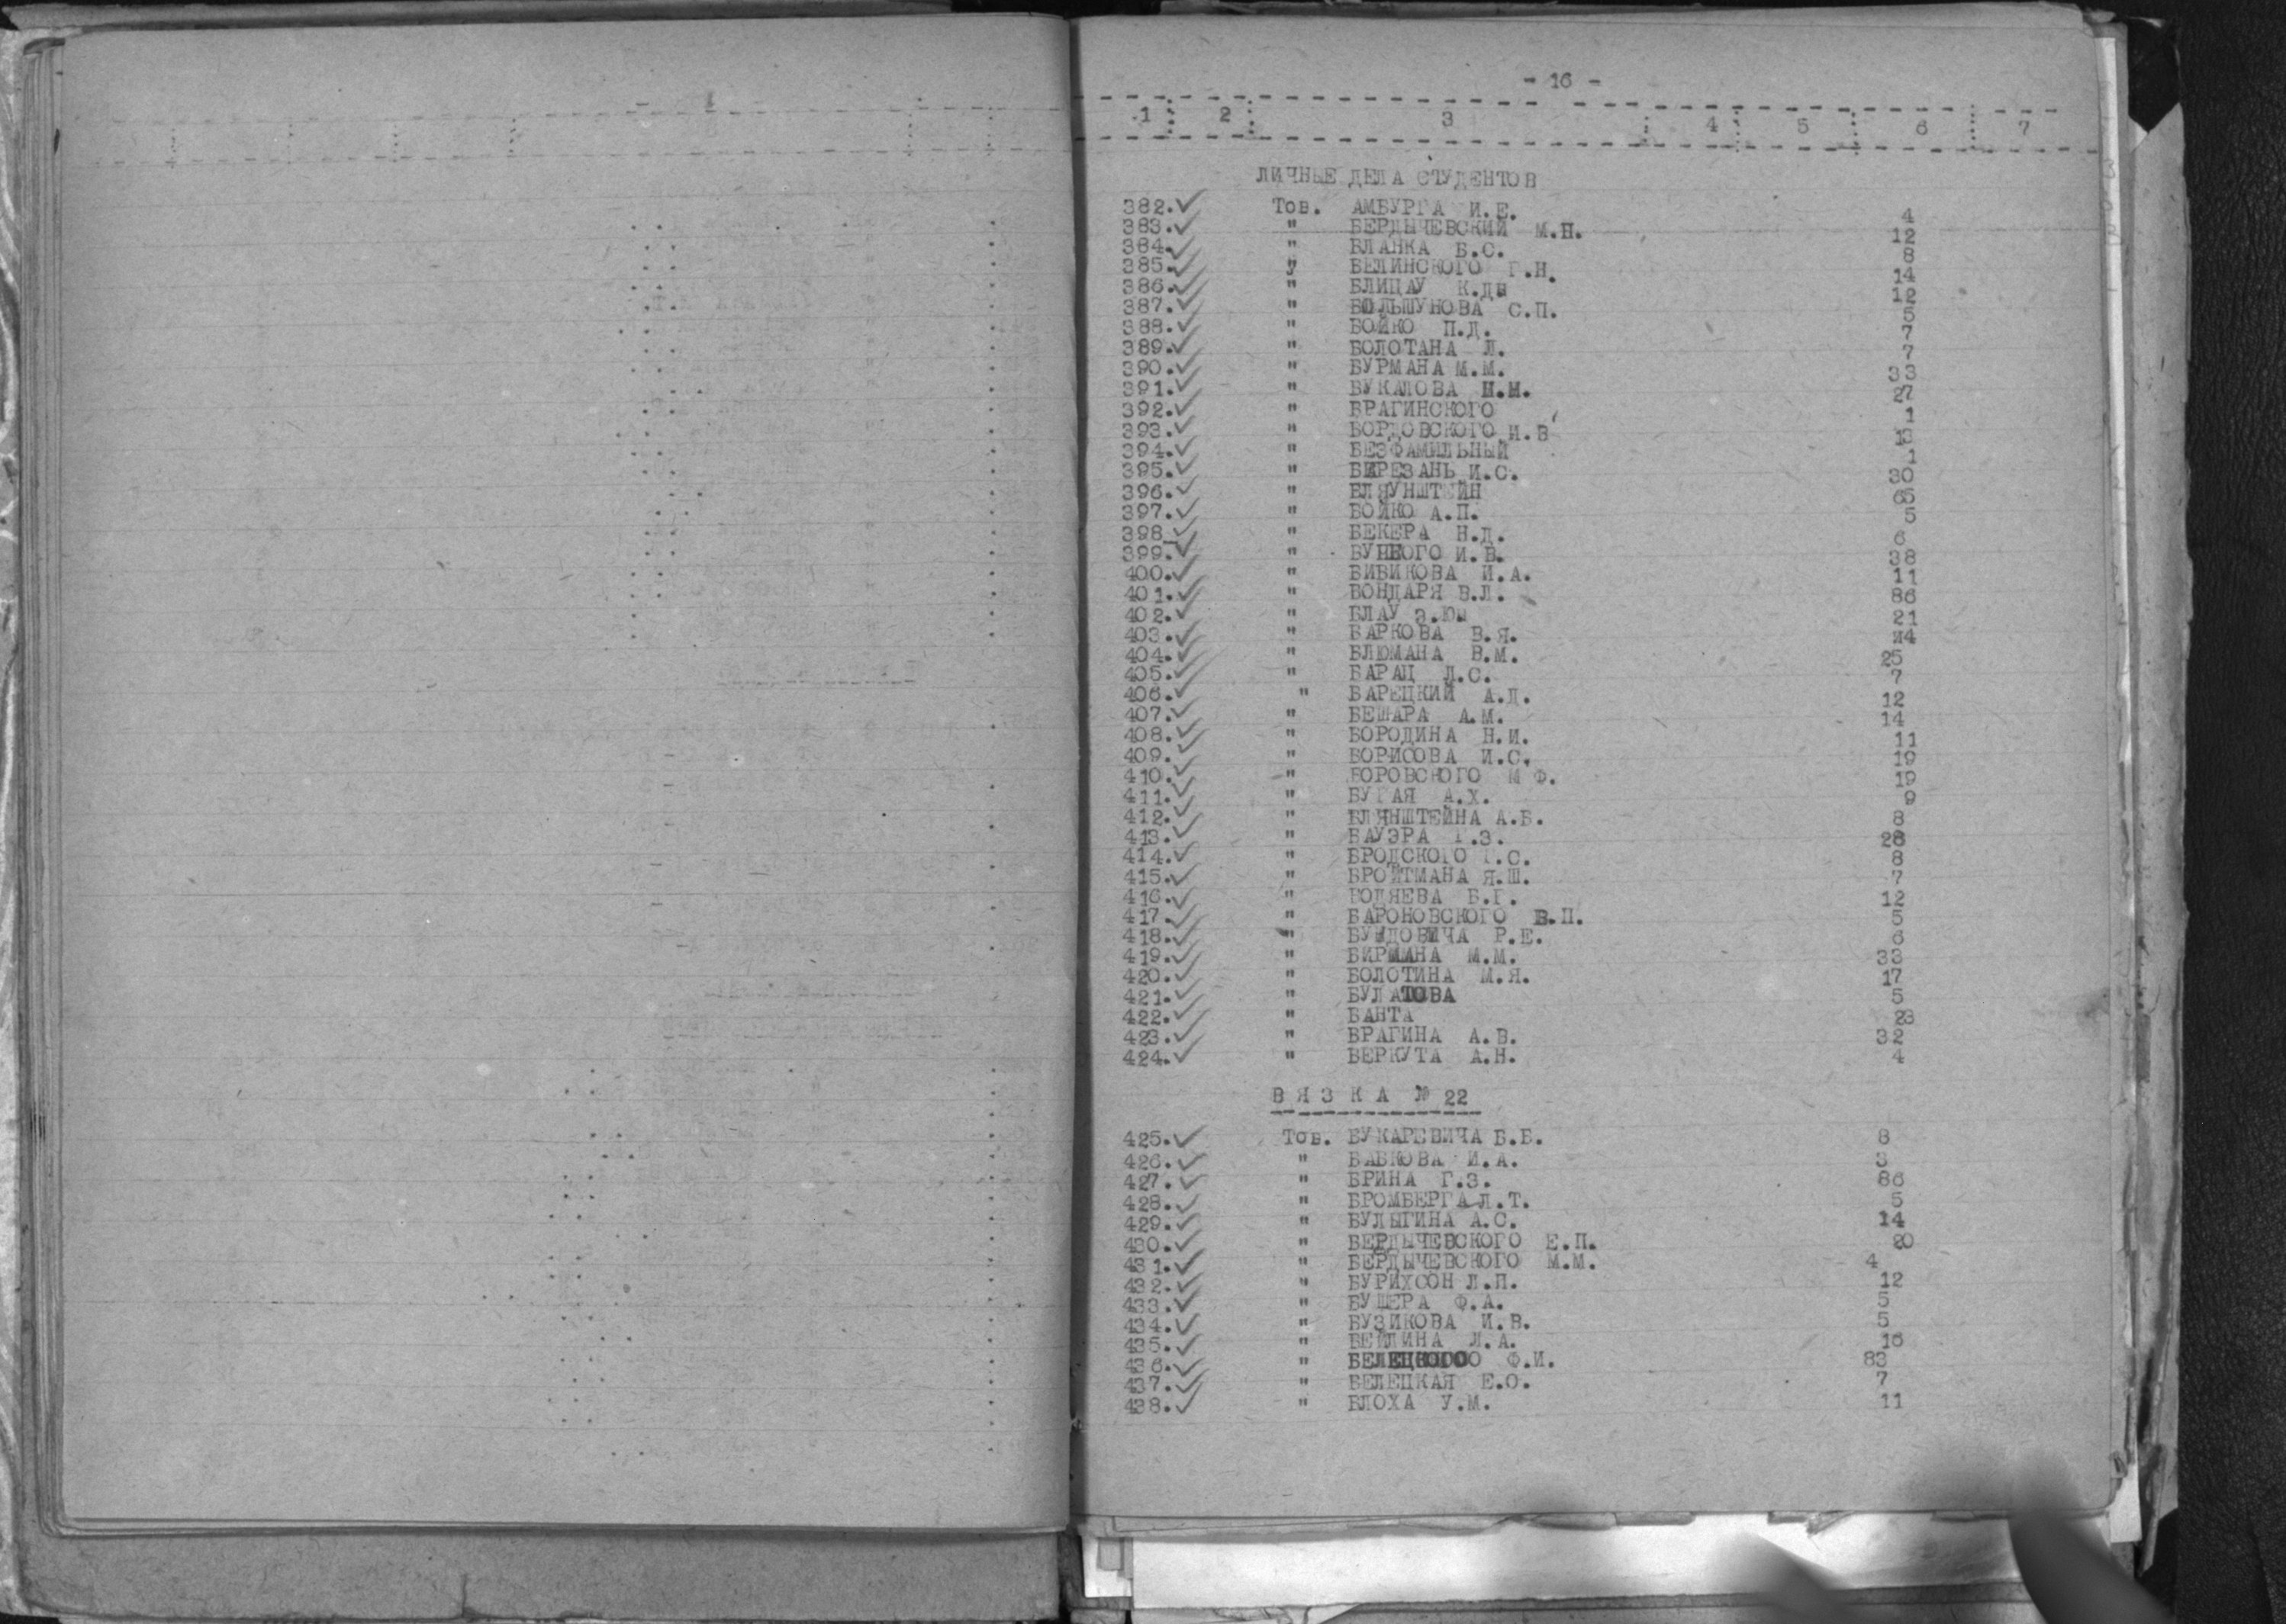 - 16 -
1 2 3 4 5 6 7
ЛИЧНЫЕ ДЕЛА СТУДЕНТОВ
382. Тов. АМБУРГА И.Е. 4
383. " БЕРДЫЧЕВСКИЙ М.Н. 12
384. " БЛАНКА Б.С. 8
385. " БЕЛИНСКОГО Г.Н. 14
386. " БЛИЦАУ 12
387. " БОЛЬШУНОВА С.П. 5
388. " БОЙКО П.Д. 7
389. " БОЛОТАНА Л. 7
390. " БУРМАНА М.М. 33
391. " БУКАЛОВА Н.М. 27
392. " БРАГИНСКОГО 1
393. " БОРДОВСКОГО И.В 13
394. " БЕЗФАМИЛЬНЫЙ 1
395. " БИРЕЗАНЬ И.С. 30
396. " БЛЯУНШТЕЙН 65
397. " БОЙКО А.П. 5
398. " БЕКЕРА Н.Д. 6
399. " И.В. 38
400. " БИБИКОВА И.А. 11
401. " БОНДАРЯ В.Л. 86
402. " БЛАУ 21
403. " БАРКОВА В.Я. 24
404. " БЛЮМАНА В.М. 25
405. " БАРАЦ Л.С. 7
406. " БАРЕЦКИЙ А.Д. 12
407. " БЕШАРА А.М. 14
408. " БОРОДИНА Н.И. 11
409. " БОРИСОВА И.С. 19
410. " БОРОВСКОГО М Ф. 19
411. " БУГАЯ А.Х. 9
412. " БЛЯНШТЕЙНА А.Б. 8
413. " БАУЭРА Г.З. 28
414. " БРОДСКОГО Г.С. 8
415. " БРОЙТМАНА Я.Ш. 7
416. " БОДЯЕВА Б.Г. 12
417. " БАРОНОВСКОГО В.П. 5
418. " БУНДОВИЧА Р.Е. 6
419. " БИРМАНА М.М. 33
420. " БОЛОТИНА М.Я. 17
421. " БУЛАТОВА 5
422. " БАНТА 23
423. " БРАГИНА А.В. 32
424. " БЕРКУТА А.Н. 4
В Я З К А № 22
425. Тов. БУКАРЕВИЧА Б.Б. 8
426. " БАБКОВА И.А. 3
427. " БРИНА Г.З. 86
428. " БРОМБЕРГА Л.Т. 5
429. " БУЛЫГИНА А.С. 14
430. " БЕРДЫЧЕВСКОГО Е.П. 20
431. " БЕРДЫЧЕВСКОГО М.М. 4
432. " БУРИХСОН Л.П. 12
433. " БУШЕРА Ф.А. 5
434. " БУЗИКОВА И.В. 5
435. " БЕЙЛИНА Л.А. 16
436. " БЕЛЕЦКОГО Ф.И. 83
437. " БЕЛЕЦКАЯ Е.О. 7
438. " БЛОХА У.М. 11